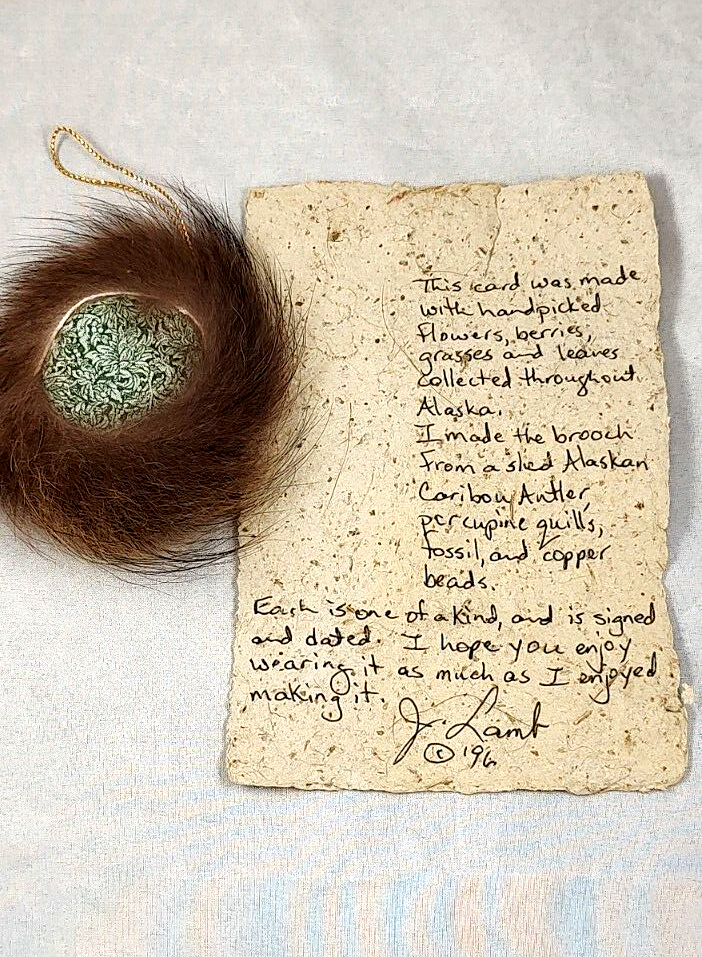 This card was made
with handpicked
flowers, berries,
grasses and leaves
collected throughout
Alaska.
I made the brooch
from a shed Alaskan
Caribou Antler,
porcupine quills,
fossil, and copper
beads.
Each is one of a kind, and is signed
and dated. I hope you enjoy
wearing it as much as I enjoyed
making it.
J. Lamb
© '96